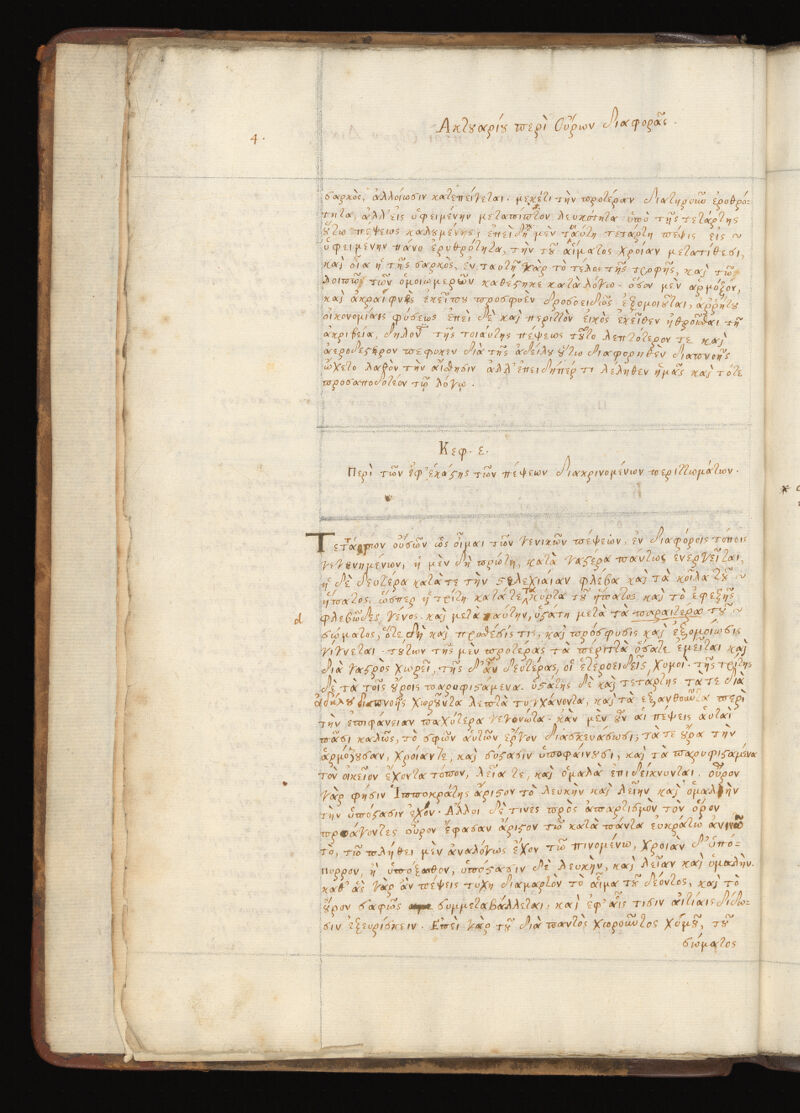 4.
Ακτουαρίου περὶ Οὔρων διαφορᾶς.
σαρκὸς, ἀλλοίωσιν κατεπείγεται. μηκέτι τὴν προτέραν διατηροῦν ἐρυθρό-
τητα, ἀλλ' εἰς ὑφειμένην μεταπίπτον λευκότητα ὑπὸ τῆς τετάρτης
οὕτω πέψεως καλουμένης, ἐπεὶ δὴ μὲν ταύτῃ τετάρτη πέψις εἰς
ὑφειμένην πάνυ ἐρυθρότητα, τὴν τοῦ αἵματος χροίαν μετατίθεσι,
καὶ οἵα ἡ τῆς σαρκὸς, ἐν ταυτῇ γὰρ τὸ τέλος τῆς τροφῆς, καὶ τῶν
λοιπῶν τῶν ὁμοιομερῶν καθέστηκε κατὰ λόγον. ὅσον μὲν ἁρμόζον,
καὶ ἀκραιφνὲς ἐκείνου προσφυὲν δροσοειδῶς ἐξομοιοῦται, ἀρρήτοις
οἰκονομίαις φύσεως ἐπεὶ δὲ καὶ περιττὸν εἰκὸς ἐκεῖθεν ἠθροῖσθαι τῇ
ἀκριβείᾳ, δῆλον τῆς τοιαύτης πέψεως τοῦτο λεπτότερον τε καὶ
ἀερωδέστερον πέφυκεν διὰ τῆς ἀδήλου οὕτω διαφορηθὲν διαπνοῆς
ᾤχετο λαθὸν τὴν αἴσθησιν ἀλλ' ἐπειδήπερ τι λέληθεν ἡμᾶς καὶ τότε
προσαποδοτέον τῷ λόγῳ.
Κεφ. ε.
Περὶ τῶν ἐφ' ἑκάστης τῶν πέψεων διακρινομένων περιττωμάτων.
Τετάρτων οὐσῶν ὡς οἶμαι τῶν γενικῶν πέψεων, ἐν διαφόροις τόποις
γεγενημένων, ἡ μὲν δὴ πρώτη, κατὰ γαστέρα πάντως ἐνεργεῖται,
ἡ δὲ δευτέρα κατά τε τὴν στελεχιαίαν φλέβα καὶ τὰ κοῖλα τοῦ
ἥπατος, ὥσπερ ἡ τρίτη κατά τε κυρτὰ τοῦ ἥπατος, καὶ τὸ ἐφεξῆς
φλεβῶδες γένος. καὶ μετὰ ταύτην, ὑστάτη μετὰ τὰ παραιτέρω τοῦ
σώματος, ὅτε δὴ καὶ πρόσθεσίς τις, καὶ πρόσφυσις καὶ ἐξομοίωσις
γίγνεται. τούτων τῆς μὲν προτέρας τὰ περιττὰ ὕστατε ἐμεῖται καὶ
διὰ γαστρὸς χωρεῖ, τῆς δ' αὖ δευτέρας, οἱ ἑτεροειδεῖς χυμοί. τῆς τρίτης
δὲ τὰ τοῖς οὔροις παρυφιστάμενα. ὑστάτης δὲ καὶ τετάρτης τά τε διὰ
ἀδήλου διαπνοῆς χωροῦντα λεπτὰ τυγχάνοντα, καὶ τὰ ἐξανθοῦντα περὶ
τὴν ἐπιφάνειαν παχύτερα γεγονότα. κἂν μὲν οὖν αἱ πέψεις αὗται
πᾶσι καλῶς, τὸ σφῶν αὐτῶν ἔργον διασκευάσωσι, τά τε οὖρα τὴν
ἁρμόζουσαν, χροίαν τε, καὶ σύστασιν ὑποφαίνουσι, καὶ τὰ παρυφιστάμενα
τὸν οἰκεῖον ἔχοντα τόπον, λεῖά τε, καὶ ὁμαλὰ ἐπιδείκνυνται. οὖρον
γάρ φησιν Ἱπποκράτης ἄριστον τὸ λευκὴν καὶ λείην καὶ ὁμαλὴν
τὴν ὑπόστασιν ἔχον. Ἄλλοι δέ τινες πρὸς ἀπαρτισμὸν τὸν ὅρον
προάγοντες οὖρον ἔφασαν ἄριστον τῷ κατὰ πάντα εὐκράτῳ
το, τῷ πλήθει μὲν ἀναλόγως ἔχον τῷ πινομένῳ, χροίαν δ' ὑπό-
πυρρον, ἢ ὑπόξανθον, ὑπόστασιν δὲ λευκὴν, καὶ λείαν καὶ ὁμαλήν.
καθ' ἃς γὰρ ἂν πέψεις τύχῃ διαμαρτὸν τὸ αἷμα τοῦ δέοντος, καὶ τὸ
οὖρον σαφῶς συμμεταβάλλεται, καὶ ἐφ' αἷς τισιν αἰτίαις δίδω-
σιν ἐξευρίσκειν. Ἐπεὶ γὰρ τοῦ διὰ παντὸς χωροῦντος χυμοῦ, τοῦ
σώματος